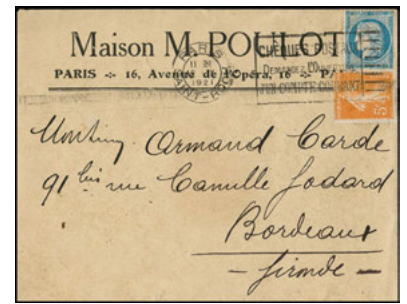 Maison M. POULOT
PARIS 16, Avenue de l'Opéra, 16
PARIS
1921
CHÈQUES POSTAUX
DEMANDEZ
UN COMPTE COURANT
5
Monsieur Armand Carde
91 bis rue Camille Godard
Bordeaux
- Gironde -